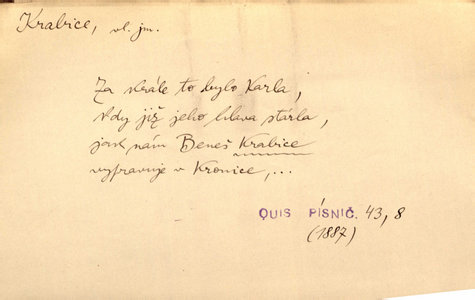 Krabice, vl. jm.
Za krále to bylo Karla,
kdy již jeho hlava stárla,
jak nám Beneš Krabice
vypravuje v Kronice,...
QUIS PÍSNIČ. 43, 8
(1887)